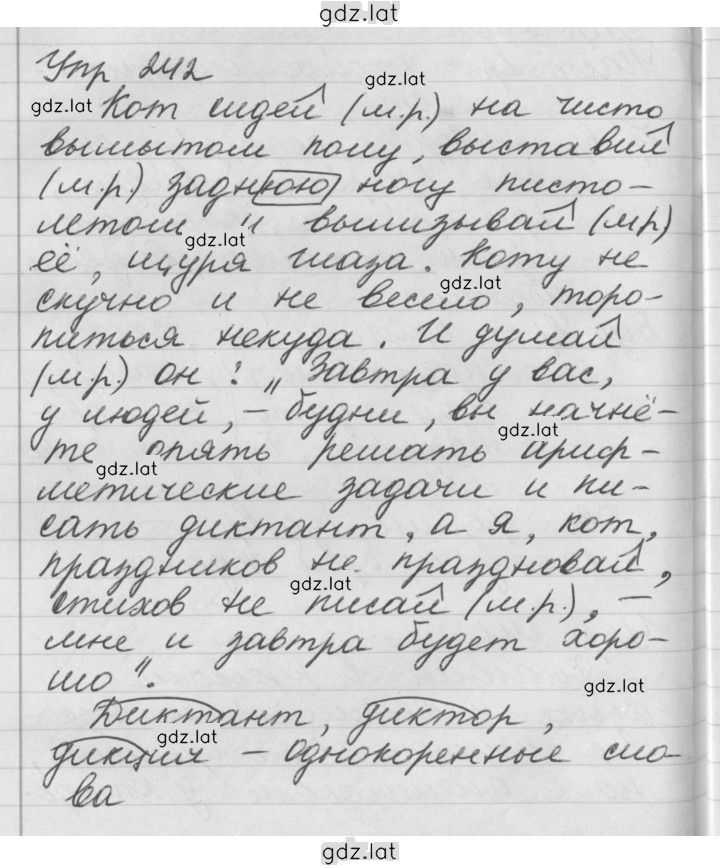 gdz.lat
Упр 242
gdz.lat
gdz.lat Кот сидел (м.р.) на чисто
вымытом полу, выставил
(м.р.) заднюю ногу писто-
летом и вылизывал (м.р)
gdz.lat
её, щуря глаза. Коту не
gdz.lat
скучно и не весело, торо-
питься некуда. И думал
(м.р.) он: „Завтра у вас,
у людей, – будни, вы начнё-
gdz.lat
те опять решать ариф-
gdz.lat
метические задачи и пи-
сать диктант, а я, кот,
праздников не праздновал,
gdz.lat
стихов не писал (м.р.), –
мне и завтра будет хоро-
шо".
gdz.lat
Диктант, диктор,
gdz.lat
дикция – однокоренные сло-
ва
gdz.lat